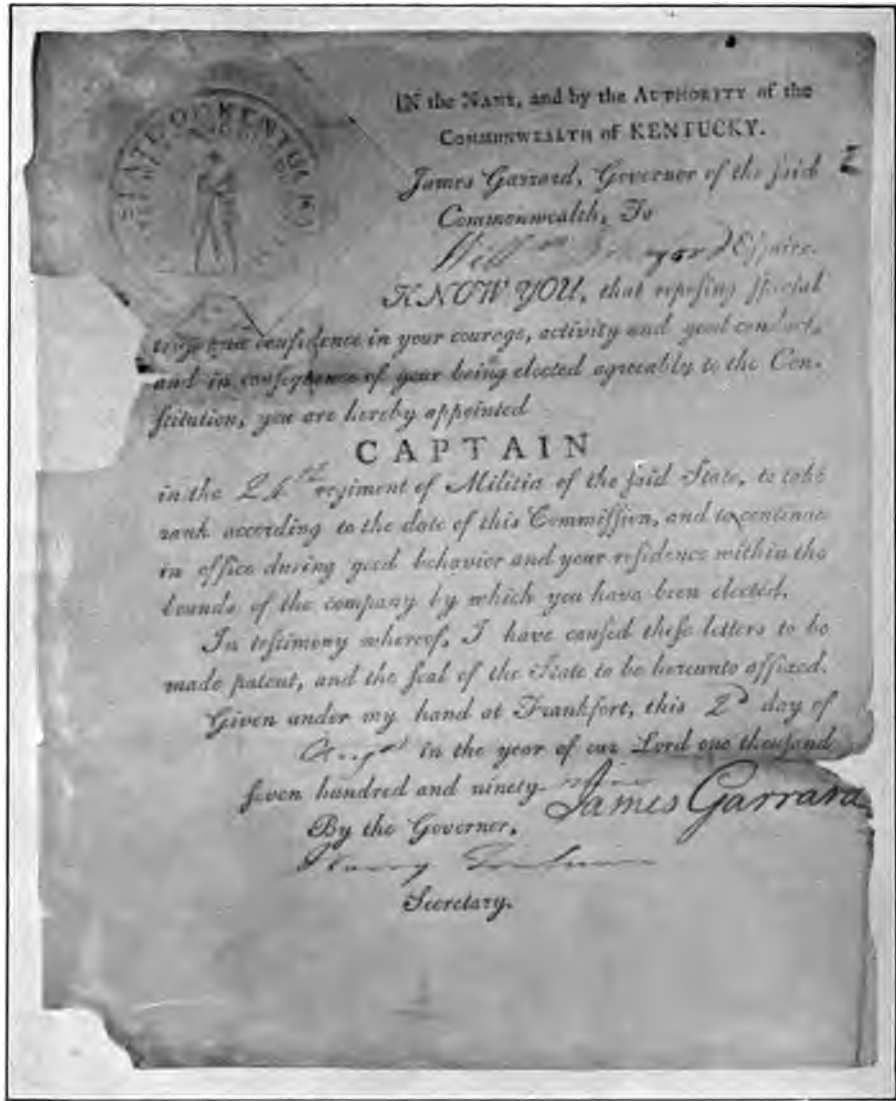 STATE OF KENTUCKY
IN the NAME, and by the AUTHORITY of the
COMMONWEALTH of KENTUCKY.
James Garrard, Governor of the ſaid
Commonwealth, To
Esquire.
KNOW YOU, that reposing ſpecial
confidence in your courage, activity and good conduct,
and in conſequence of your being elected agreeably to the Con-
ſtitution, you are hereby appointed
CAPTAIN
in the regiment of Militia of the ſaid State, to take
rank according to the date of this Commiſſion, and to continue
in office during good behavior and your reſidence within the
bounds of the company by which you have been elected.
In teſtimony whereof, I have cauſed theſe letters to be
made patent, and the ſeal of the State to be hereunto affixed.
Given under my hand at Frankfort, this 2d day of
Auguſt in the year of our Lord one thouſand
ſeven hundred and ninety-
James Garrard
By the Governor,
Secretary.